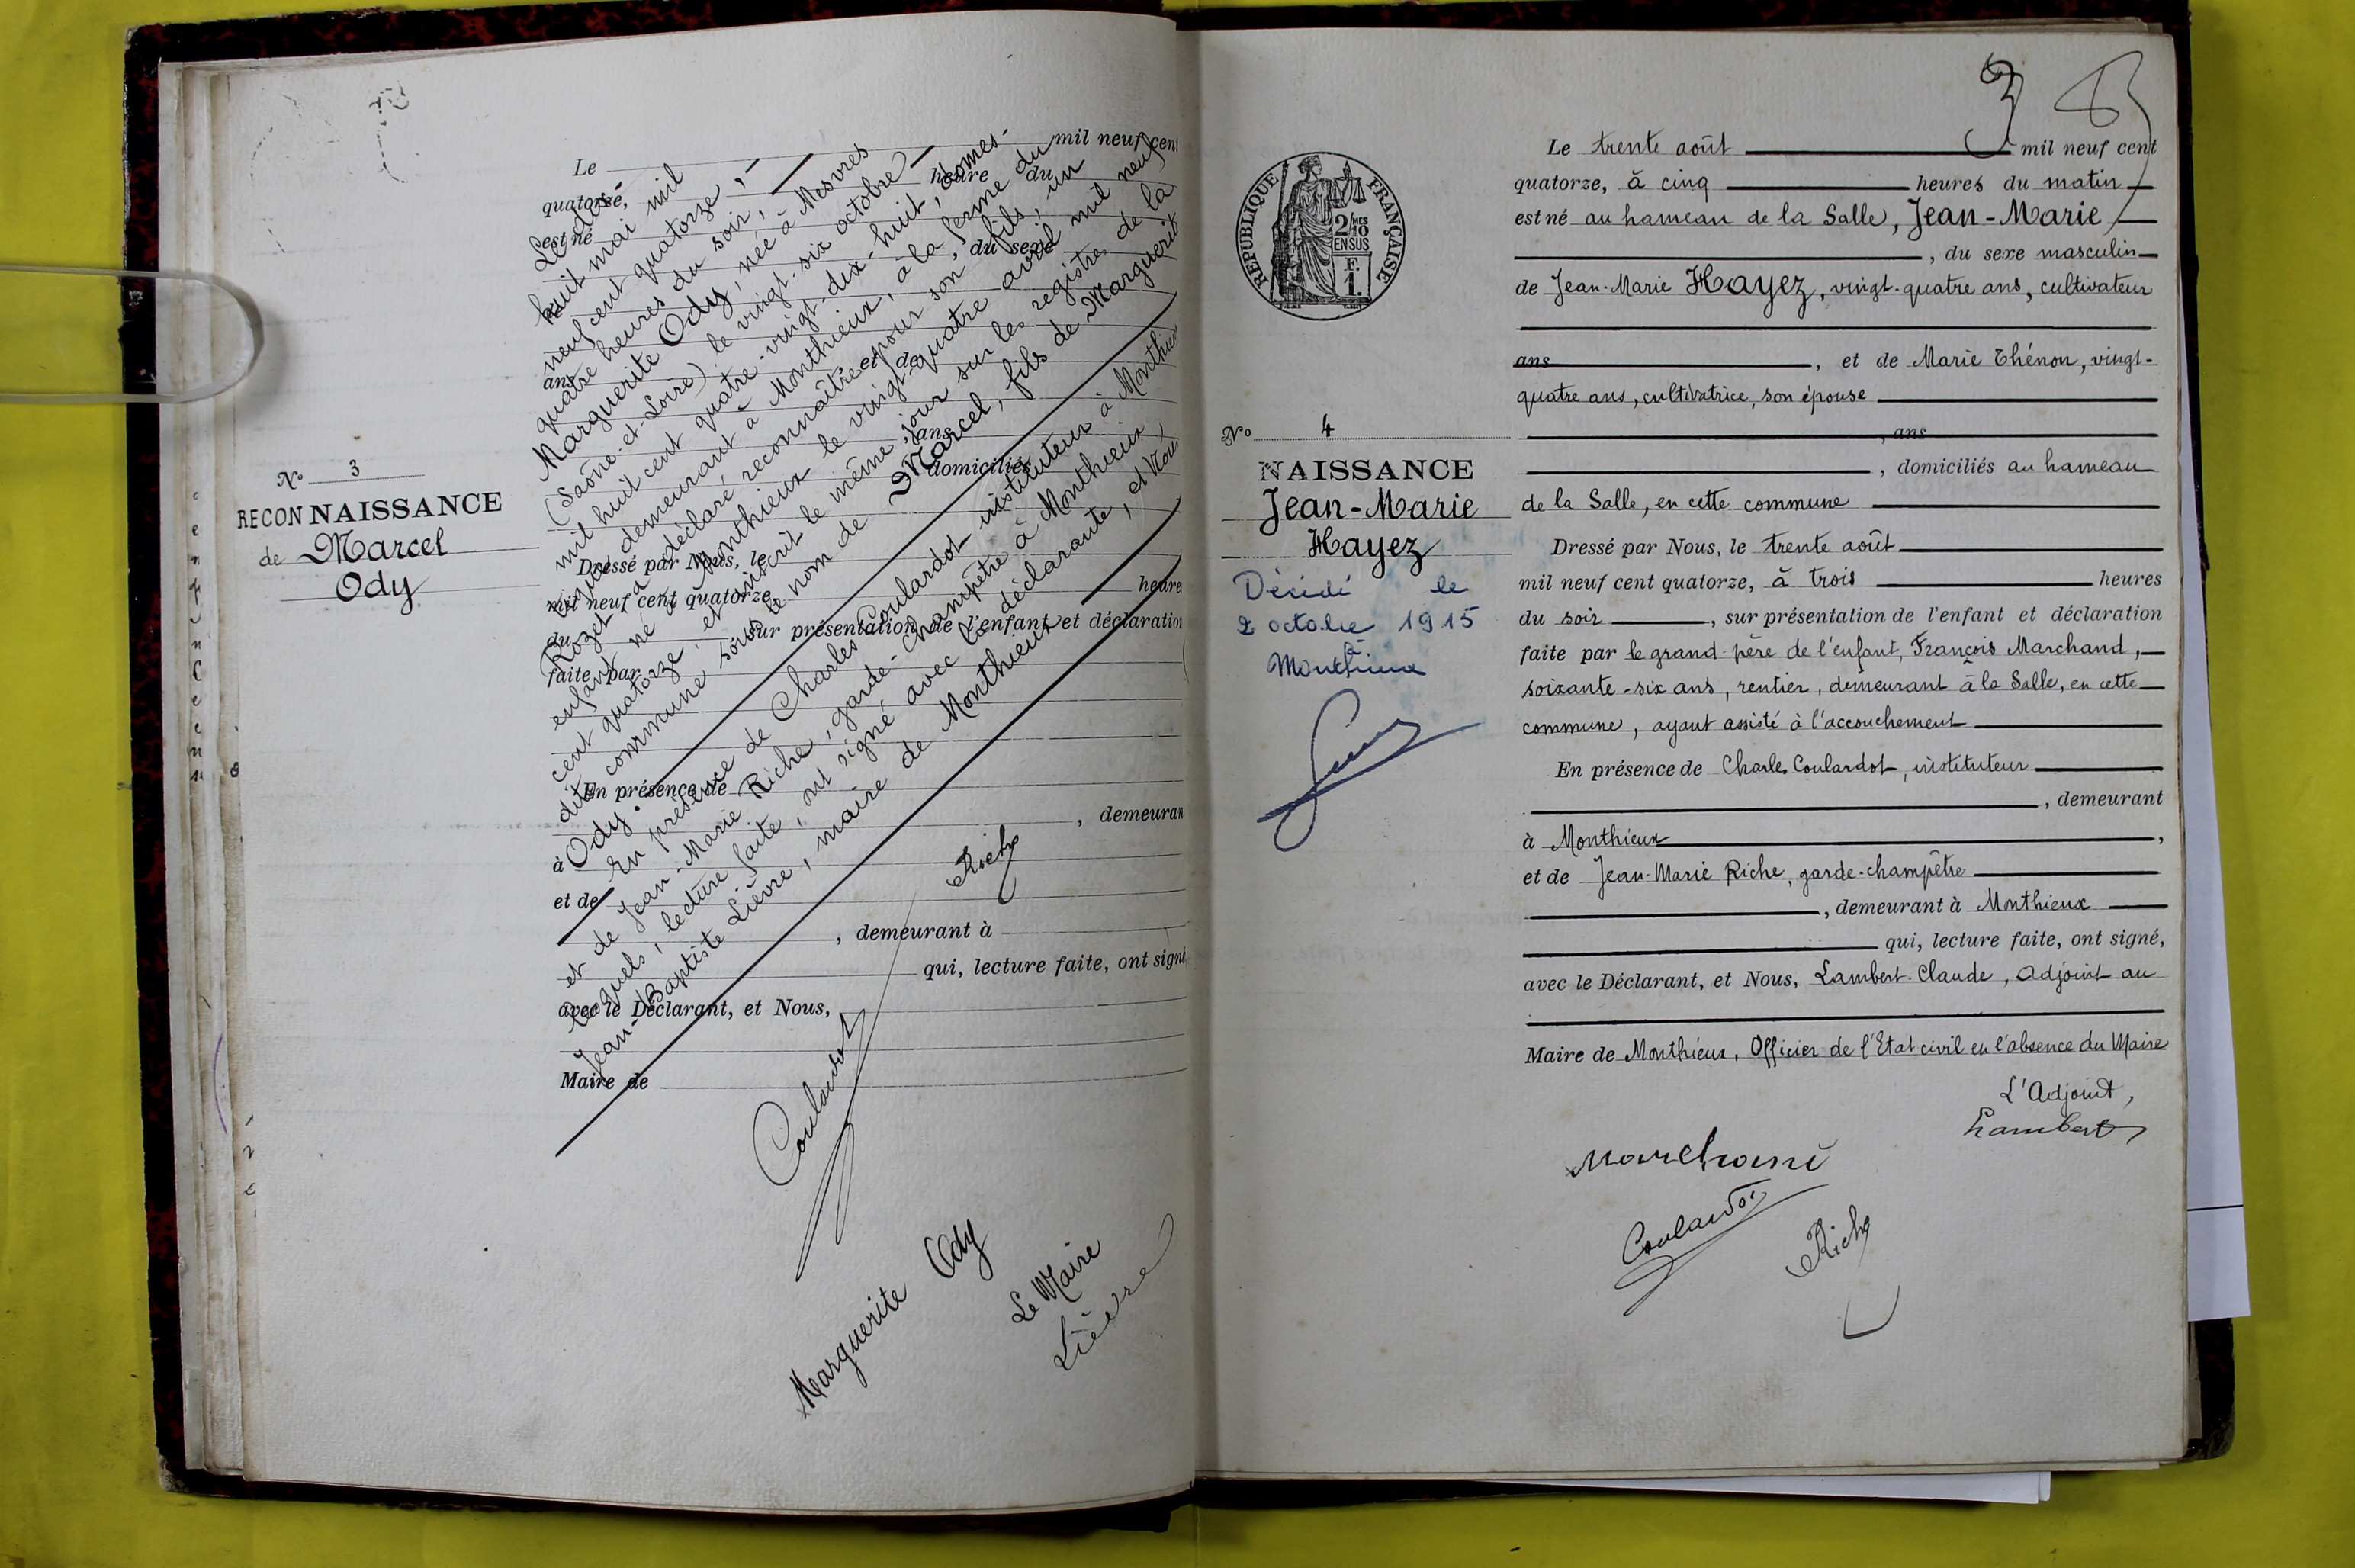 N° 3
RECONNAISSANCE
de Marcel
Ody
Le mil neuf cent
quatorze, heure du
est né
, du sexe
ans
, et de
, ans
, domiciliés
Dressé par Nous, le
mil neuf cent quatorze heure
du , sur présentation de l'enfant et déclaration
faite par
En présence de
, demeuran
à
et de
, demeurant à
qui, lecture faite, ont signé
avec le Déclarant, et Nous,
Maire de
Le dix
huit mai mil
neuf cent quatorze,
quatre heures du soir,
Marguerite Ody, née à Mesvres
(Saône-et-Loire) le vingt-six octobre
mil huit cent quatre-vingt-dix-huit, domes-
tique demeurant à Monthieux, à la ferme du
Rozet a déclaré reconnaître pour son fils, un
enfant né à Monthieux le vingt-quatre avril mil neuf
cent quatorze, et inscrit le même jour sur les registres de la
dite commune sous le nom de Marcel, fils de Marguerite
Ody.
En présence de Charles Coulardot instituteur à Monthieux
et de Jean-Marie Riche, garde-champêtre à Monthieux,
lesquels, lecture faite, ont signé avec la déclarante, et Nous
Jean-Baptiste Lièvre, maire de Monthieux
Riche
Coulardot
Marguerite Ody
Le Maire
Lièvre
3
REPUBLIQUE FRANÇAISE
2/10 EN SUS
F. 1.
N° 4
NAISSANCE
Jean-Marie
Hayez
Décidé le
2 octobre 1915
à
Monthieux
Le trente août mil neuf cent
quatorze, à cinq heures du matin
est né au hameau de la Salle, Jean-Marie
, du sexe masculin
de Jean-Marie Hayez, vingt-quatre ans, cultivateur
ans , et de Marie Thénon, vingt-
quatre ans, cultivatrice, son épouse
, ans
, domiciliés au hameau
de la Salle, en cette commune
Dressé par Nous, le trente août
mil neuf cent quatorze, à trois heures
du soir , sur présentation de l'enfant et déclaration
faite par le grand-père de l'enfant, François Marchand,
soixante-six ans, rentier, demeurant à la Salle, en cette
commune, ayant assisté à l'accouchement
En présence de Charles Coulardot, instituteur
, demeurant
à Monthieux ,
et de Jean-Marie Riche, garde-champêtre
, demeurant à Monthieux
qui, lecture faite, ont signé,
avec le Déclarant, et Nous, Lambert Claude, Adjoint au
Maire de Monthieux, Officier de l'Etat civil en l'absence du Maire
L'Adjoint,
Lambert
Marchand
Coulardot
Riche